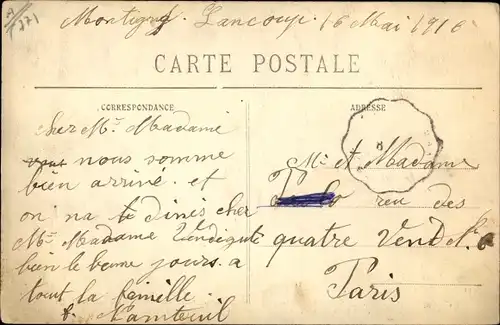 Montigny Lancoup. 16 Mai 1916
CARTE POSTALE
CORRESPONDANCE
ADRESSE
cher Mr Madame
nous somme
bien arriné. et
on na dinés cher
Mr Madame
bien le bonne jours. a
tout la femille
Mr et Madame
reu des
quatre Vend
Paris